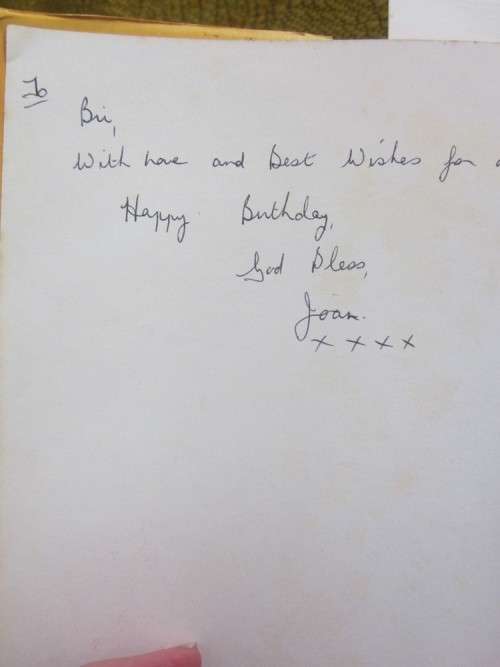 To
Bri,
With Love and Best Wishes for a
Happy Birthday,
God Bless,
Joan.
x x x x